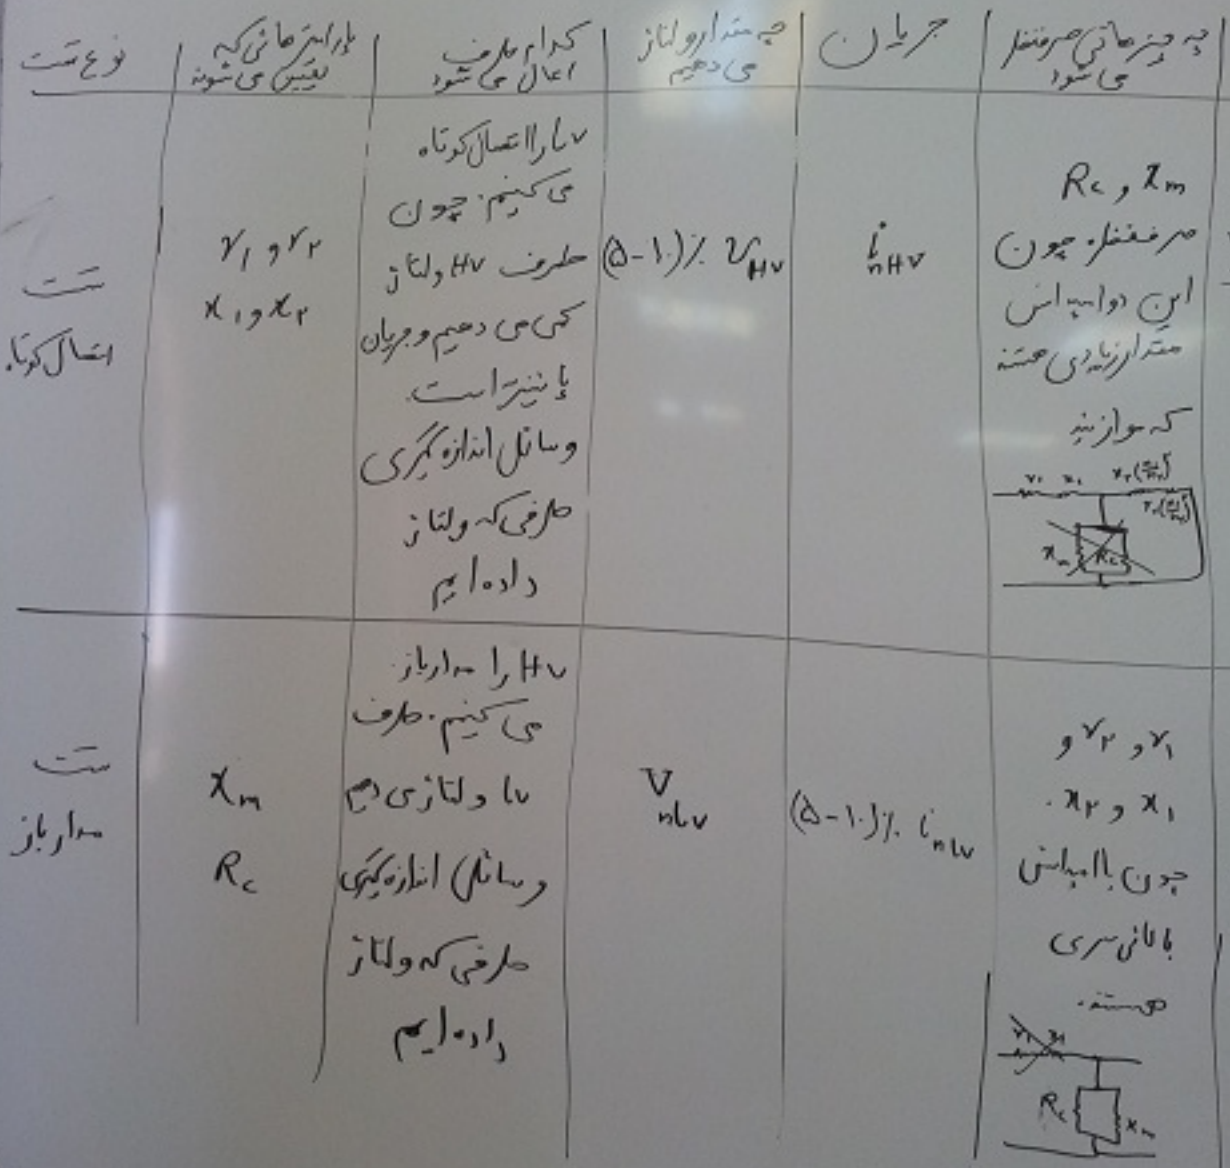 نوع تست
پارامترهائی که
تعیین می شوند
کدام طرف
اعمال می شود
چه مقدار ولتاژ
می دهیم
جریان
چه چیزهائی صرفنظر
می شود
تست
اتصال کوتاه
r₁ و r₂
x₁ و x₂
Lv را اتصال کوتاه
می کنیم. چون
طرف Hv ولتاژ
کمی می دهیم و جریان
پائین تر است.
وسائل اندازه گیری
طرفی که ولتاژ
داده ایم
(۵-۱۰)٪ V_Hv
i_nHv
R_c و x_m
صرفنظر. چون
این دو امپدانس
مقدار زیادی هستند
که موازیند
r₁ x₁
x_m R_c
تست
مدار باز
x_m
R_c
Hv را مدار باز
می کنیم. طرف
Lv ولتاژ می دهیم
وسائل اندازه گیری
طرفی که ولتاژ
داده ایم
V_nLv
(۵-۱۰)٪ i_nLv
r₁ و r₂ و
x₁ و x₂.
چون با امپدانس
بالائی سری
هستند.
r₁ x₁
R_c x_m